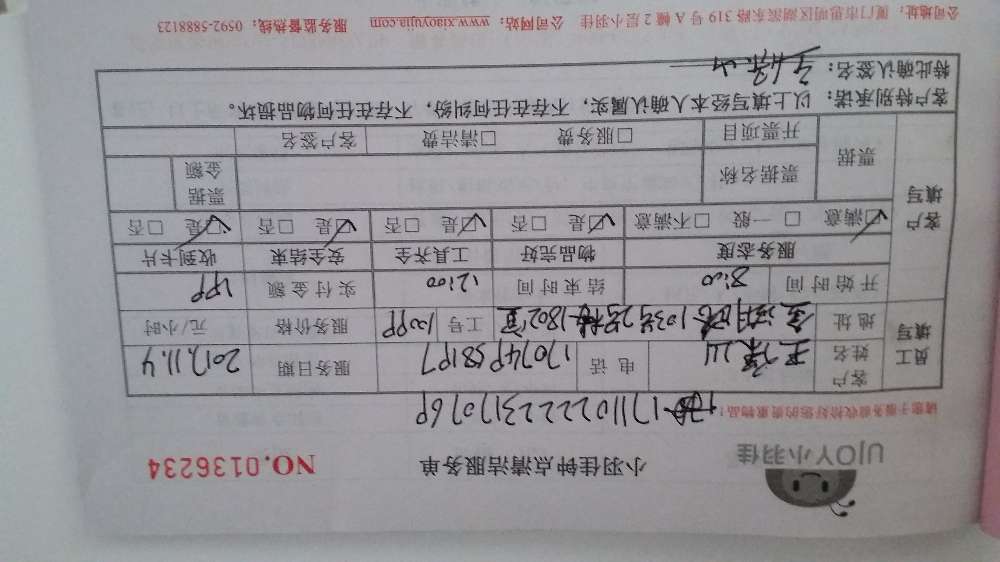 UJOY小羽佳
小羽佳钟点清洁服务单 NO.0136234
请您于服务前收拾好您的贵重物品!
171102222317076
员工填写 客户姓名 王 山 电话 服务日期 2017.11.4
地址 金湖路103号 1802室 工号 服务价格 元/小时
开始时间 8:00 结束时间 12:00 实付金额
客户填写 服务态度 物品完好 工具齐全 安全结束 收到卡片
☑满意 □一般 □不满意 ☑是 □否 ☑是 □否 ☑是 □否 ☑是 □否
票据 票据名称 票据金额
开票项目 □服务费 □清洁费 客户签名
客户特别承诺:以上填写经本人确认属实,不存在任何纠纷,不存在任何物品损坏。
特此确认签名:
公司地址:厦门市思明区湖滨东路319号A幢2层小羽佳 公司网站:www.xiaoyujia.com 服务监督热线:0592-5888123